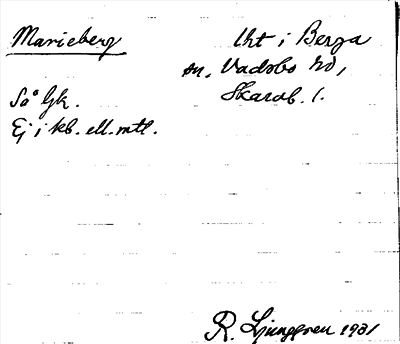 Marieberg
Lht i Berga
sn, Vadsbo hd,
Skarab. l.
Så Gk.
Ej i kb. ell. mtl.
R. Ljunggren 1931